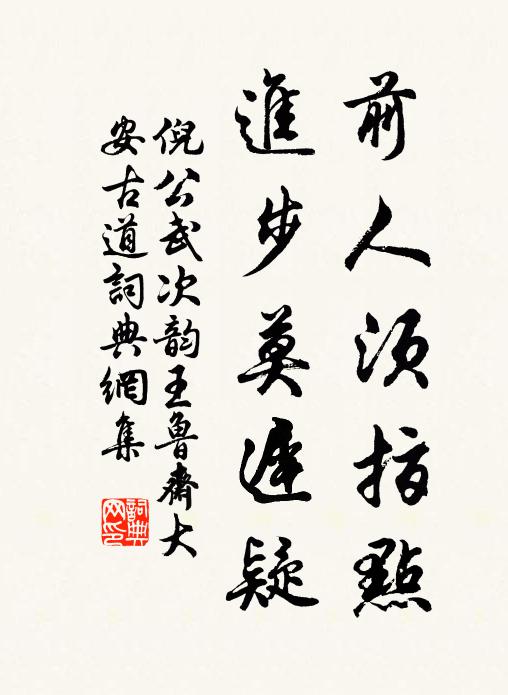 前人須指點
進步莫遲疑
倪公武次韵王魯齋大
安古道詞典網集
詞典网印